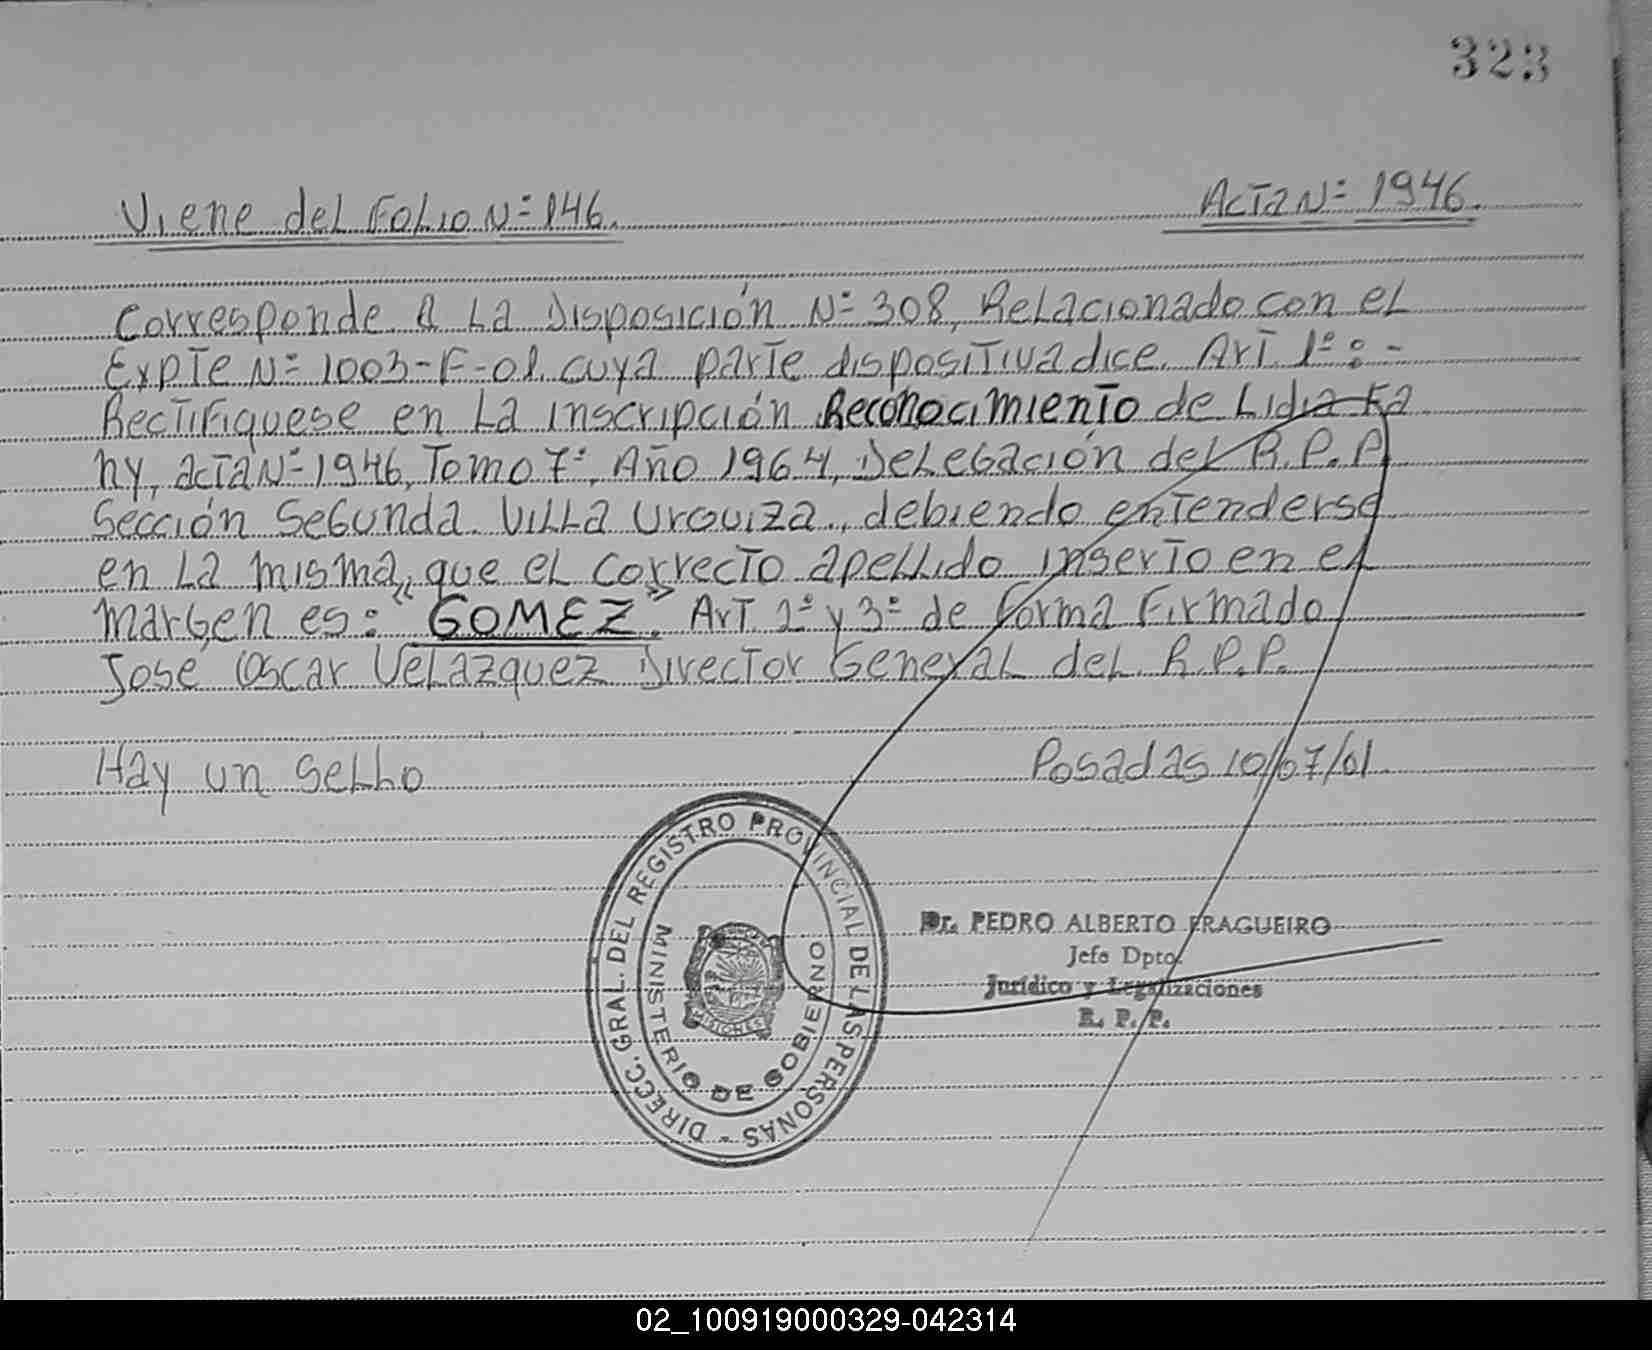 323
Viene del Folio Nº 146.
Acta Nº 1946.
Corresponde a La Disposición Nº 308, Relacionado con el
Expte Nº 1003-F-01. cuya parte dispositiva dice. Art. 1º:-
Rectifiquese en La inscripción Reconocimiento de Lidia Fa
ny, acta Nº 1946, Tomo 7º, Año 1964, Delegación del R.P.P.
Sección Segunda. Villa Urquiza., debiendo entenderse
en La misma, que el correcto apellido inserto en el
margen es: "GOMEZ". Art. 2º y 3º de forma Firmado
Jose, Oscar Velazquez Director General del R.P.P.
Hay un sello
Posadas 10/07/01.
DIRECC. GRAL. DEL REGISTRO PROVINCIAL DE LAS PERSONAS -
MINISTERIO DE GOBIERNO
MISIONES
Dr. PEDRO ALBERTO FRAGUEIRO
Jefe Dpto.
Jurídico y Legalizaciones
R. P. P.
02_100919000329-042314